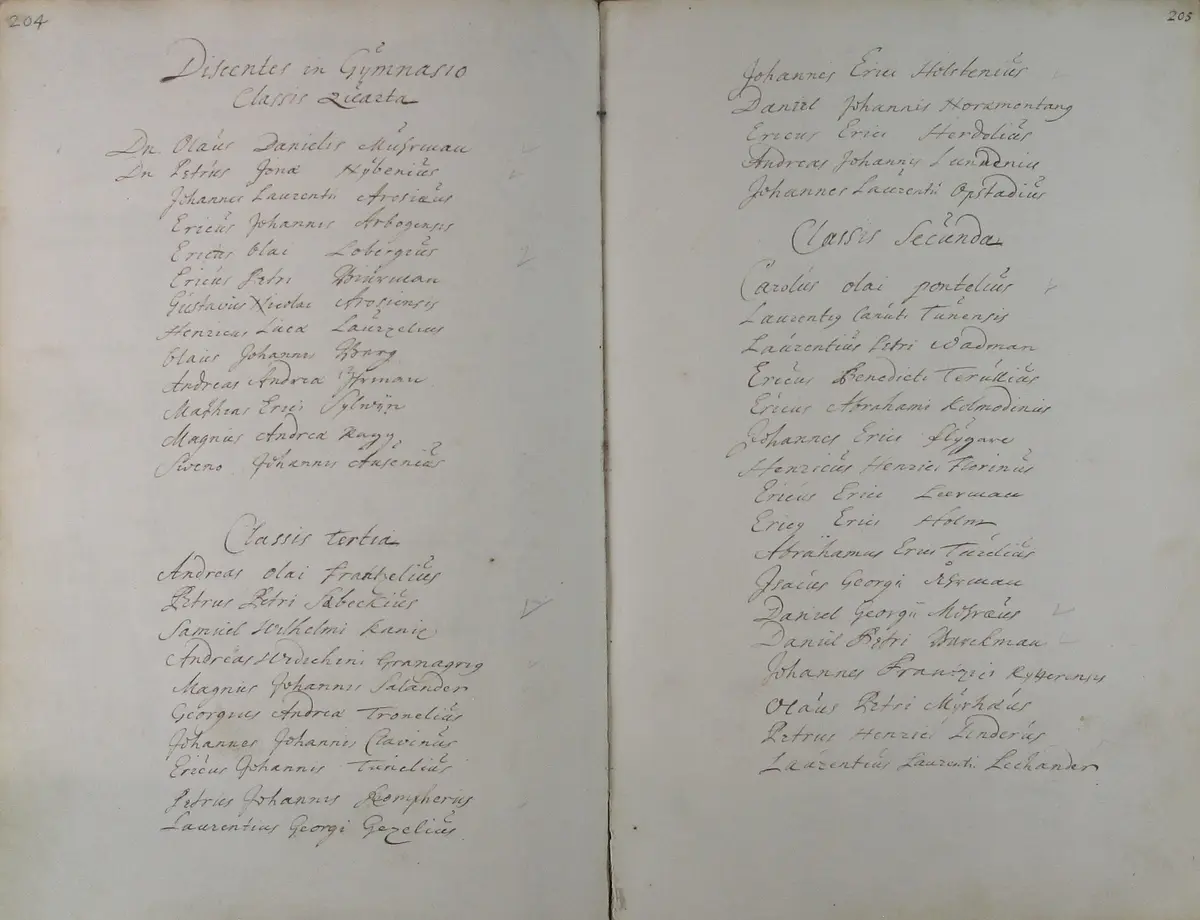 204
Discentes in Gÿmnasio
Classis Quarta
Dn Olaus Danielis Muhrman
Dn Petrus Jonæ Nybenius
Johannes Laurentii Arosiæus
Ericus Johannis Arbogensis
Ericus Olai Lobergius
Ericus Petri
Gustavus Nicolai Arosiensis
Henricus Lucæ Laurzelius
Olaus Johannis
Andreas Andreæ
Mathias Erici Sylwÿn
Magnus Andreæ Kagg
Sweno Johannis Ausenius
Classis Tertia
Andreas Olai Frantzelius
Petrus Petri Sabeckius
Samuel Wilhelmi Kunic
Andreas
Magnus Johannis Salander
Georgius Andreæ Tronelius
Johannes Johannis Clavinus
Ericus Johannis Tunelius
Petrus Johannis
Laurentius Georgi Gezelius
205
Johannes Erici Holstenius
Daniel Johannis
Ericus Erici Herdolius
Andreas Johannis Lundenius
Johannes Laurentii Opstadius
Classis Secunda
Carolus Olai Pontelius
Laurentig Canuti Tunensis
Laurentius Petri Wadman
Ericus Benedicti Terullius
Ericus Abrahami Kolmodinius
Johannes Erici Flÿgare
Henricus Henrici Florinus
Ericus Erici Leerman
Ericg Erici Holm
Abrahamus Erici Turelius
Isacus Georgii
Daniel Georgii
Daniel Petri Barckman
Johannes Frantzici
Olaus Petri Myrhæus
Petrus Henrici Zinderus
Laurentius Laurentii Lechander